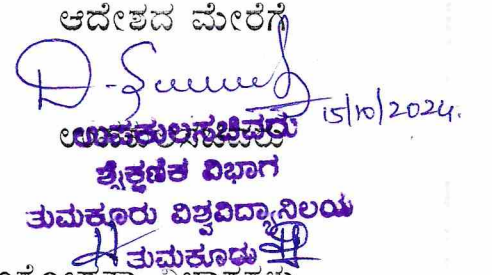 ಆದೇಶದ ಮೇರೆಗೆ
15/10/2024.
ಉಪಕುಲಸಚಿವರು
ಶೈಕ್ಷಣಿಕ ವಿಭಾಗ
ತುಮಕೂರು ವಿಶ್ವವಿದ್ಯಾನಿಲಯ
ತುಮಕೂರು